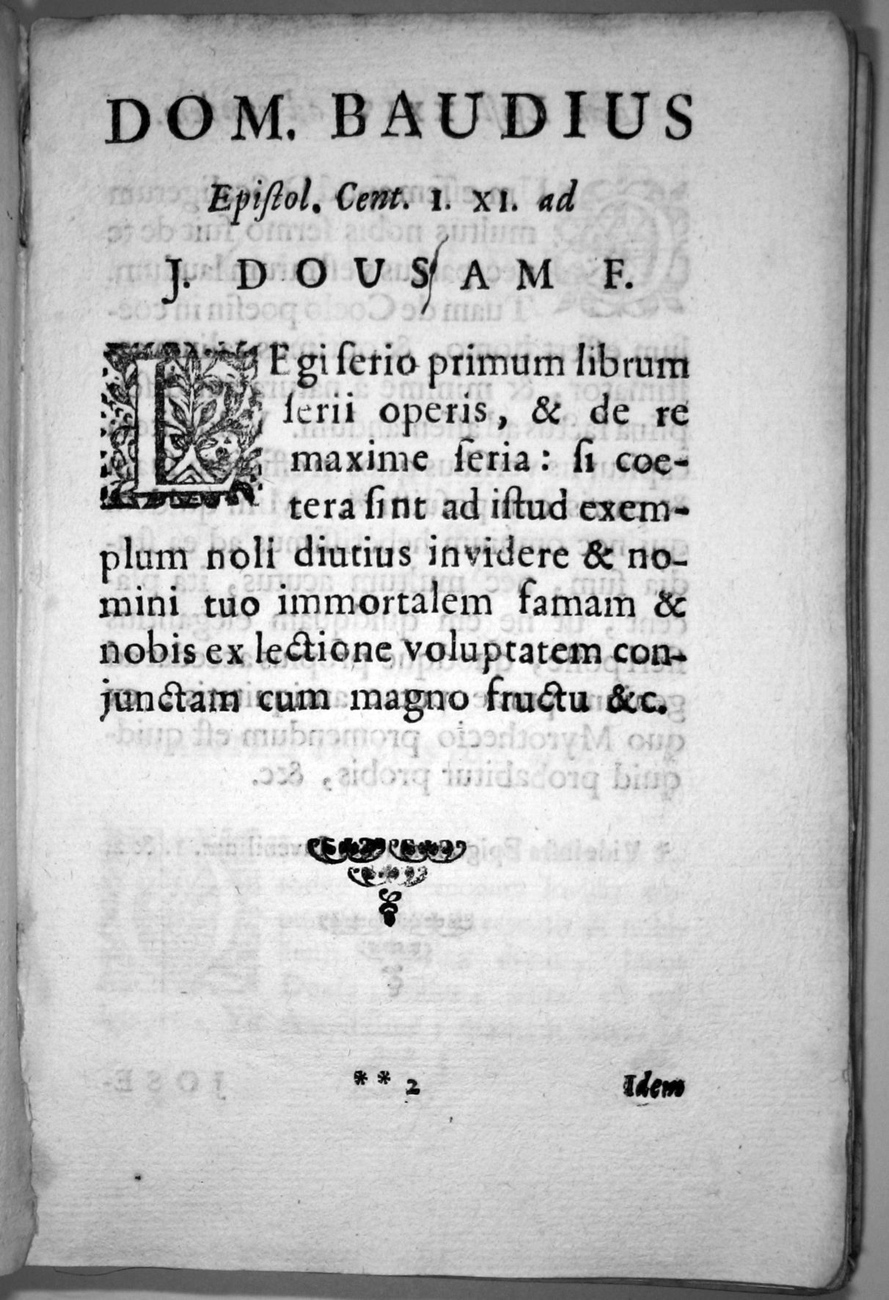 DOM. BAUDIUS
Epiſtol. Cent. I. XI. ad
J. DOUSAM F.
LEgi ſerio primum librum
ſerii operis, & de re
maxime ſeria: ſi coe-
tera ſint ad iſtud exem-
plum noli diutius invidere & no-
mini tuo immortalem famam &
nobis ex lectione voluptatem con-
junctam cum magno fructu &c.
* * 2
Idem